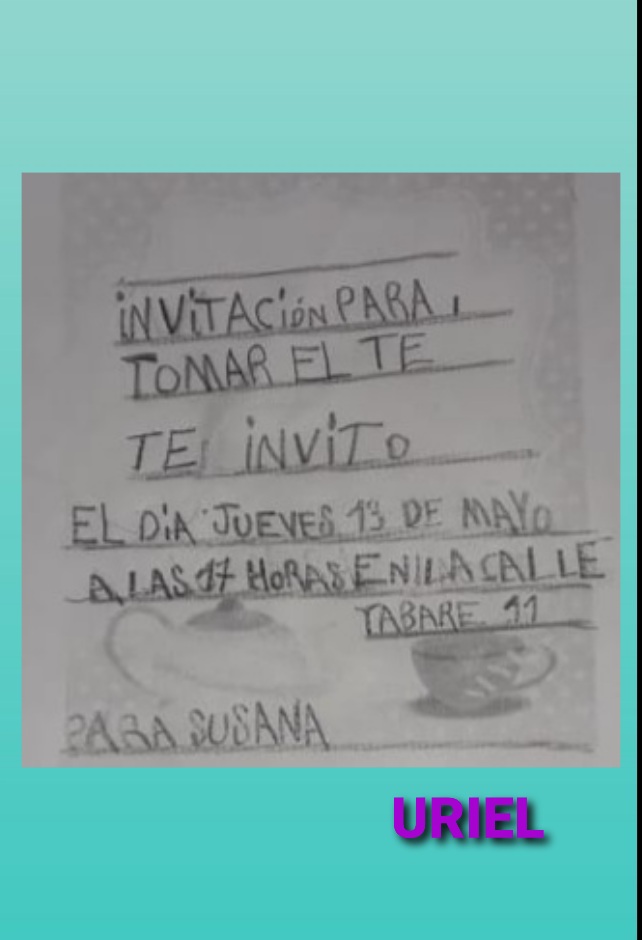 iNViTACióN PARA
TOMAR EL TE
TE iNViTO
EL DiA JUEVES 13 DE MAYO
A LAS 17 HORAS EN LA CALLE
TABARE 11
PARA SUSANA
URIEL